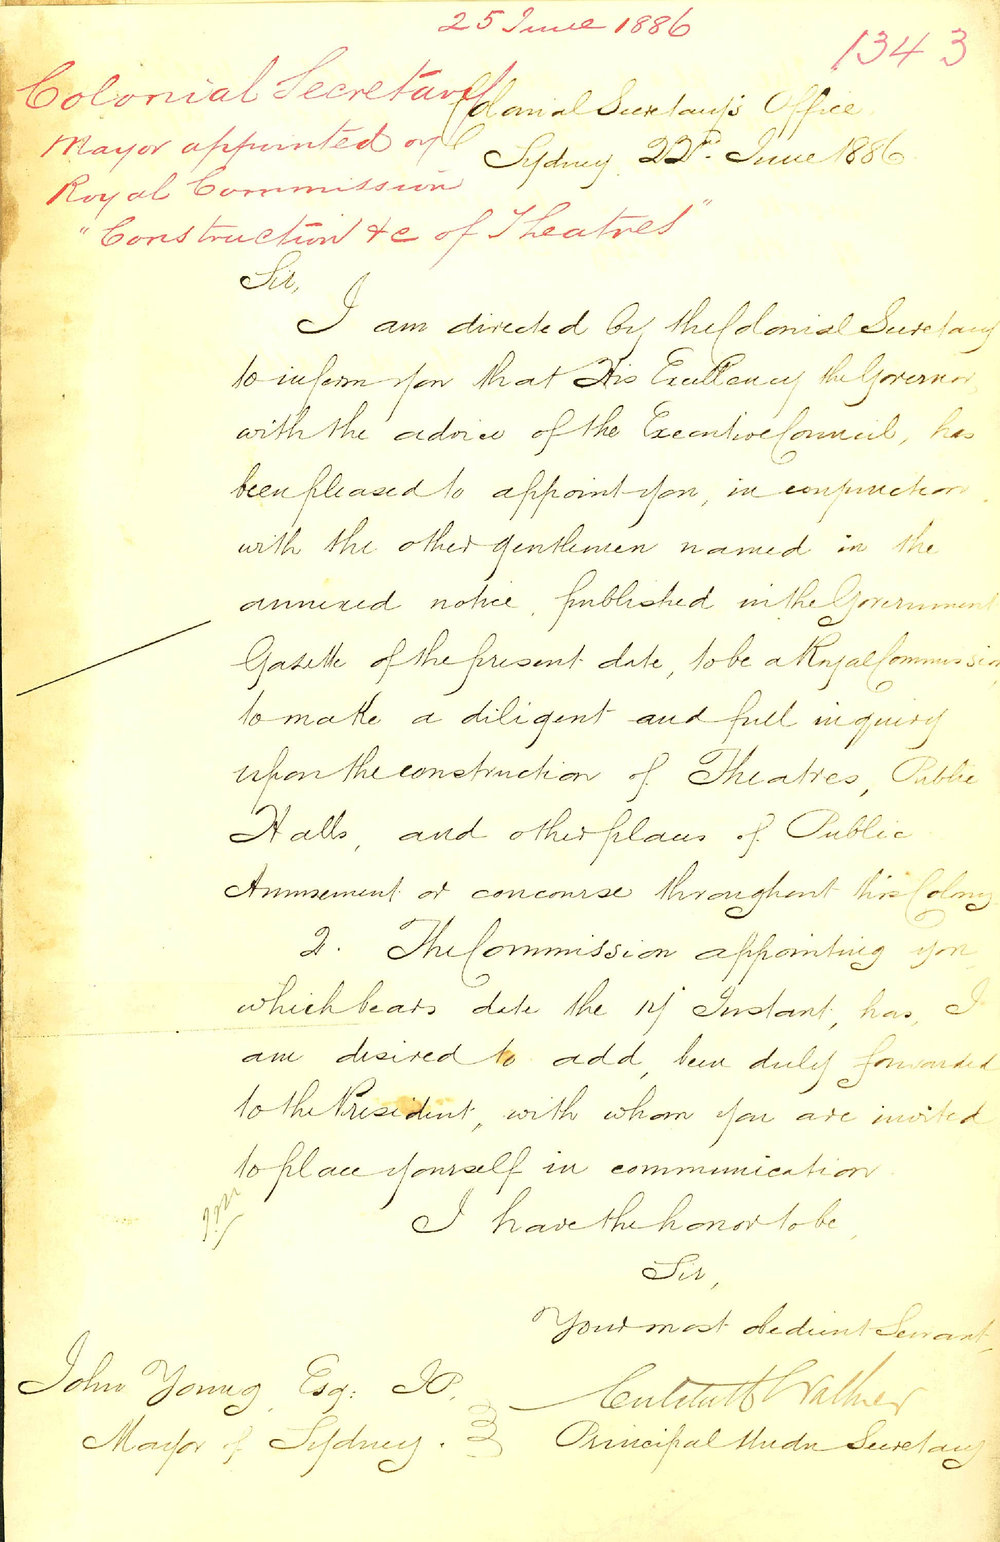 25 June 1886
1343
Colonial Secretary
Mayor appointed on
Royal Commission
"Construction &c of Theatres"
Colonial Secretary's Office
Sydney, 22nd. June 1886
Sir,
I am directed by the Colonial Secretary
to inform you that His Excellency the Governor,
with the advice of the Executive Council, has
been pleased to appoint you, in conjunction
with the other gentlemen named in the
annexed notice, published in the Government
Gazette of the present date, to be a Royal Commission,
to make a diligent and full inquiry
upon the construction of Theatres, Public
Halls, and other places of Public
Amusement or concourse throughout this Colony.
2. The Commission appointing you,
which bears date the instant, has, I
am desired to add, been duly forwarded
to the President, with whom you are invited
to place yourself in communication.
I have the honor to be,
Sir,
Your most obedient Servant,
John Young, Esq: JP.
Critchett Walker
Mayor of Sydney.
Principal Under Secretary